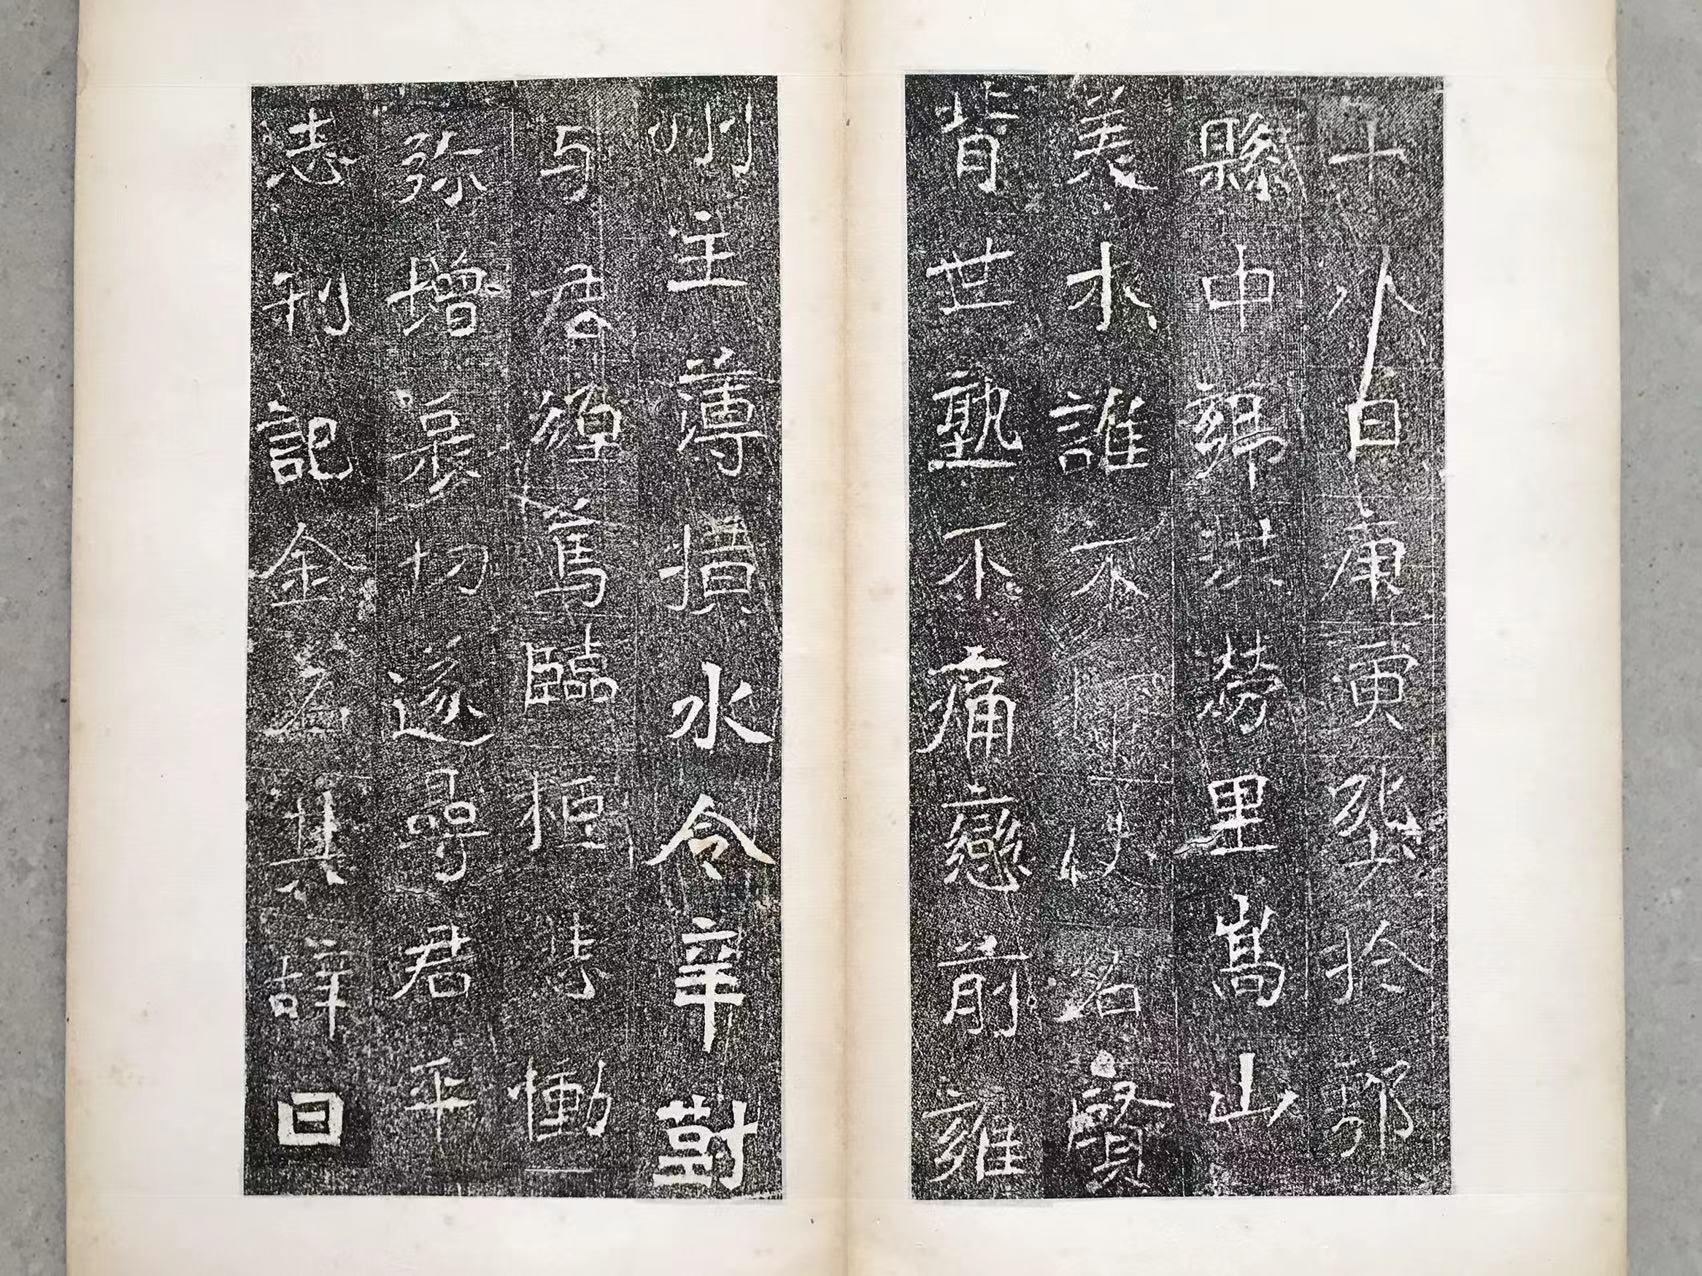 十八日庚寅塟於鄠
縣中鄉洪澇里嵩山
美木誰不歸名賢
背世孰不痛戀前雍
州主薄橫水令辛對
与君纏篤臨柩悲慟
弥增哀切遂尋君平
志刊記金石其辞曰